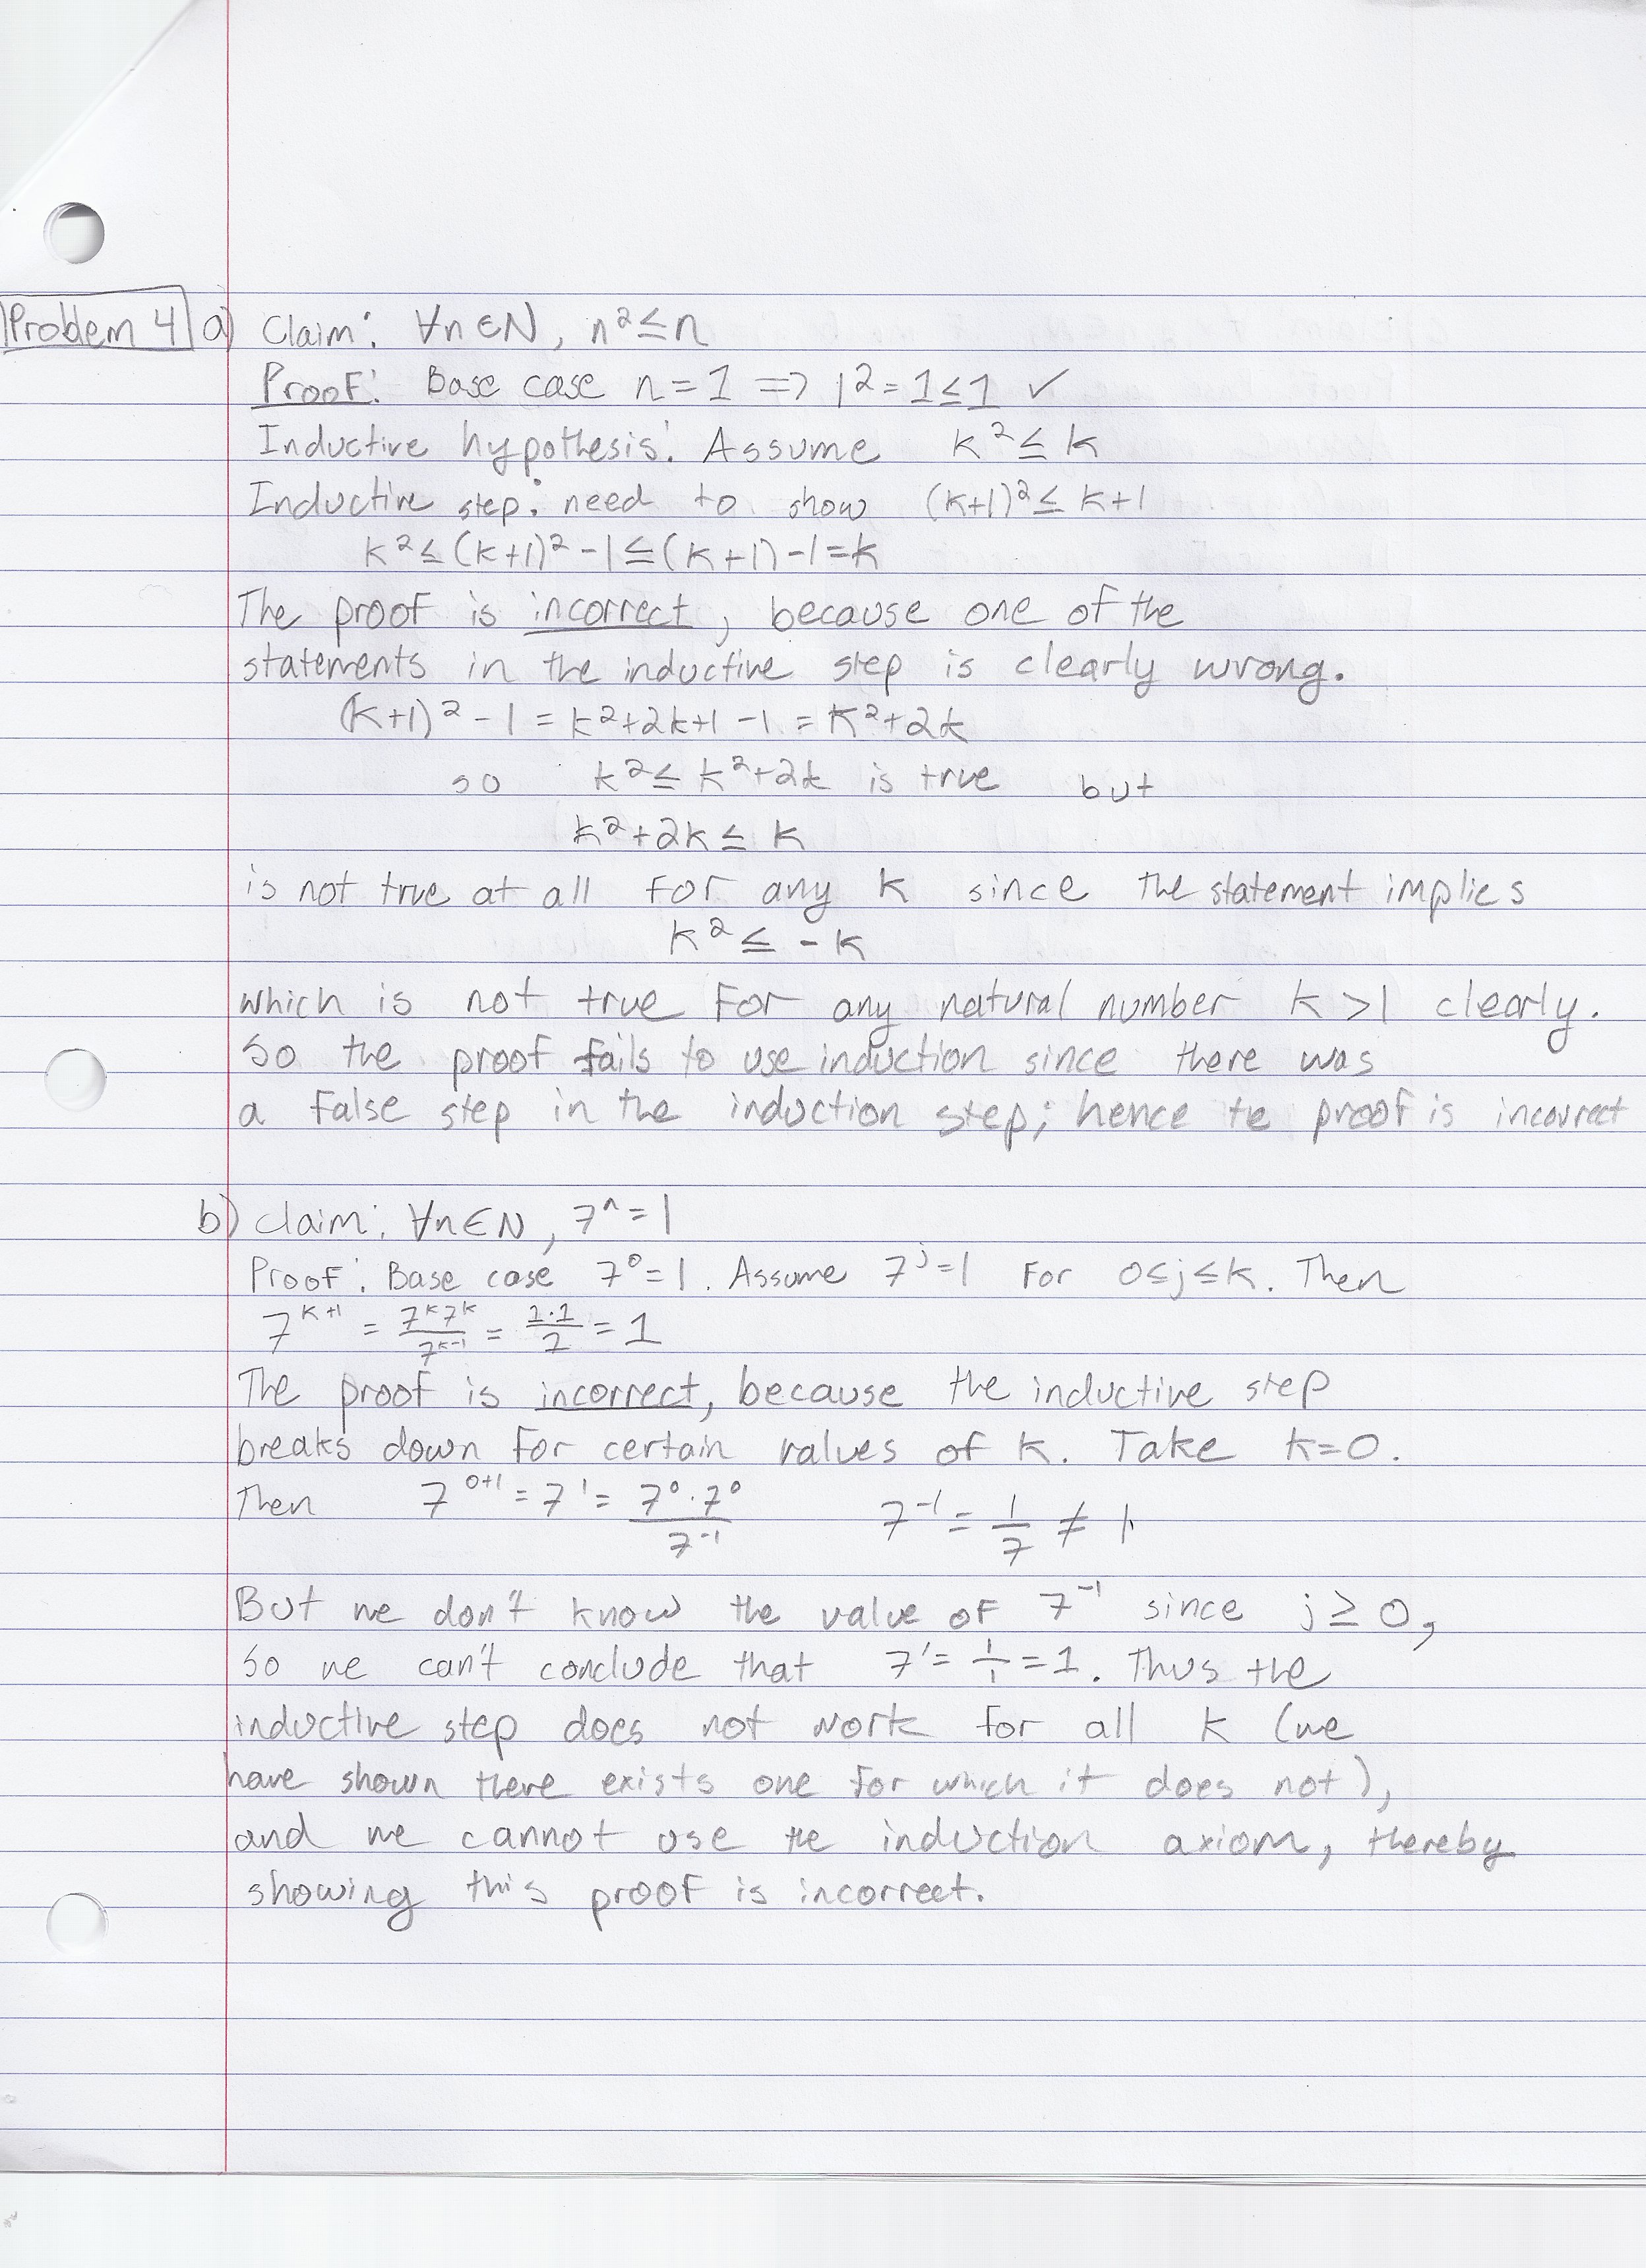 Problem 4 a) Claim: ∀n∈N, n² ≤ n
Proof: Base case n = 1 => 1² = 1 ≤ 1 ✓
Inductive hypothesis: Assume k² ≤ k
Inductive step: need to show (k+1)² ≤ k+1
k² ≤ (k+1)² - 1 ≤ (k+1) - 1 = k
The proof is incorrect, because one of the
statements in the inductive step is clearly wrong.
(k+1)² - 1 = k² + 2k + 1 - 1 = k² + 2k
so k² ≤ k² + 2k is true but
k² + 2k ≤ k
is not true at all for any k since the statement implies
k² ≤ -k
which is not true for any natural number k > 1 clearly.
So the proof fails to use induction since there was
a false step in the induction step; hence te proof is incorrect
b) claim: ∀n∈N, 7^n = 1
Proof: Base case 7^0 = 1. Assume 7^j = 1 for 0 ≤ j ≤ k. Then
7^{k+1} = \frac{7^k 7^k}{7^{k-1}} = \frac{1·1}{1} = 1
The proof is incorrect, because the inductive step
breaks down for certain values of k. Take k=0.
Then 7^{0+1} = 7^1 = \frac{7^0·7^0}{7^{-1}} 7^{-1} = \frac{1}{7} ≠ 1
But we don't know the value of 7^{-1} since j ≥ 0,
so we can't conclude that 7^1 = \frac{1}{1} = 1. Thus the
inductive step does not work for all k (we
have shown there exists one for which it does not),
and we cannot use the induction axiom, thereby
showing this proof is incorrect.